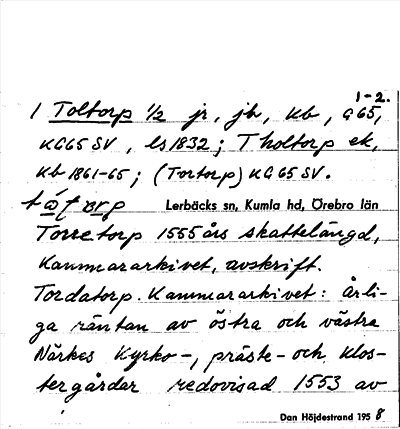 1-2.
1 Toltorp 1/2 jr, jb, Kb, G65,
KG65 SV, ls 1832; Tholtorp ek,
Kb 1861-65; (Tortorp) KG65 SV.
Lerbäcks sn, Kumla hd, Örebro län
Torretorp 1555 års skattelängd,
Kammararkivet, avskrift.
Tordatorp. Kammararkivet: årli-
ga räntan av östra och västra
Närkes Kyrko-, präste- och klos-
tergårdar redovisad 1553 av
Dan Höjdestrand 1958